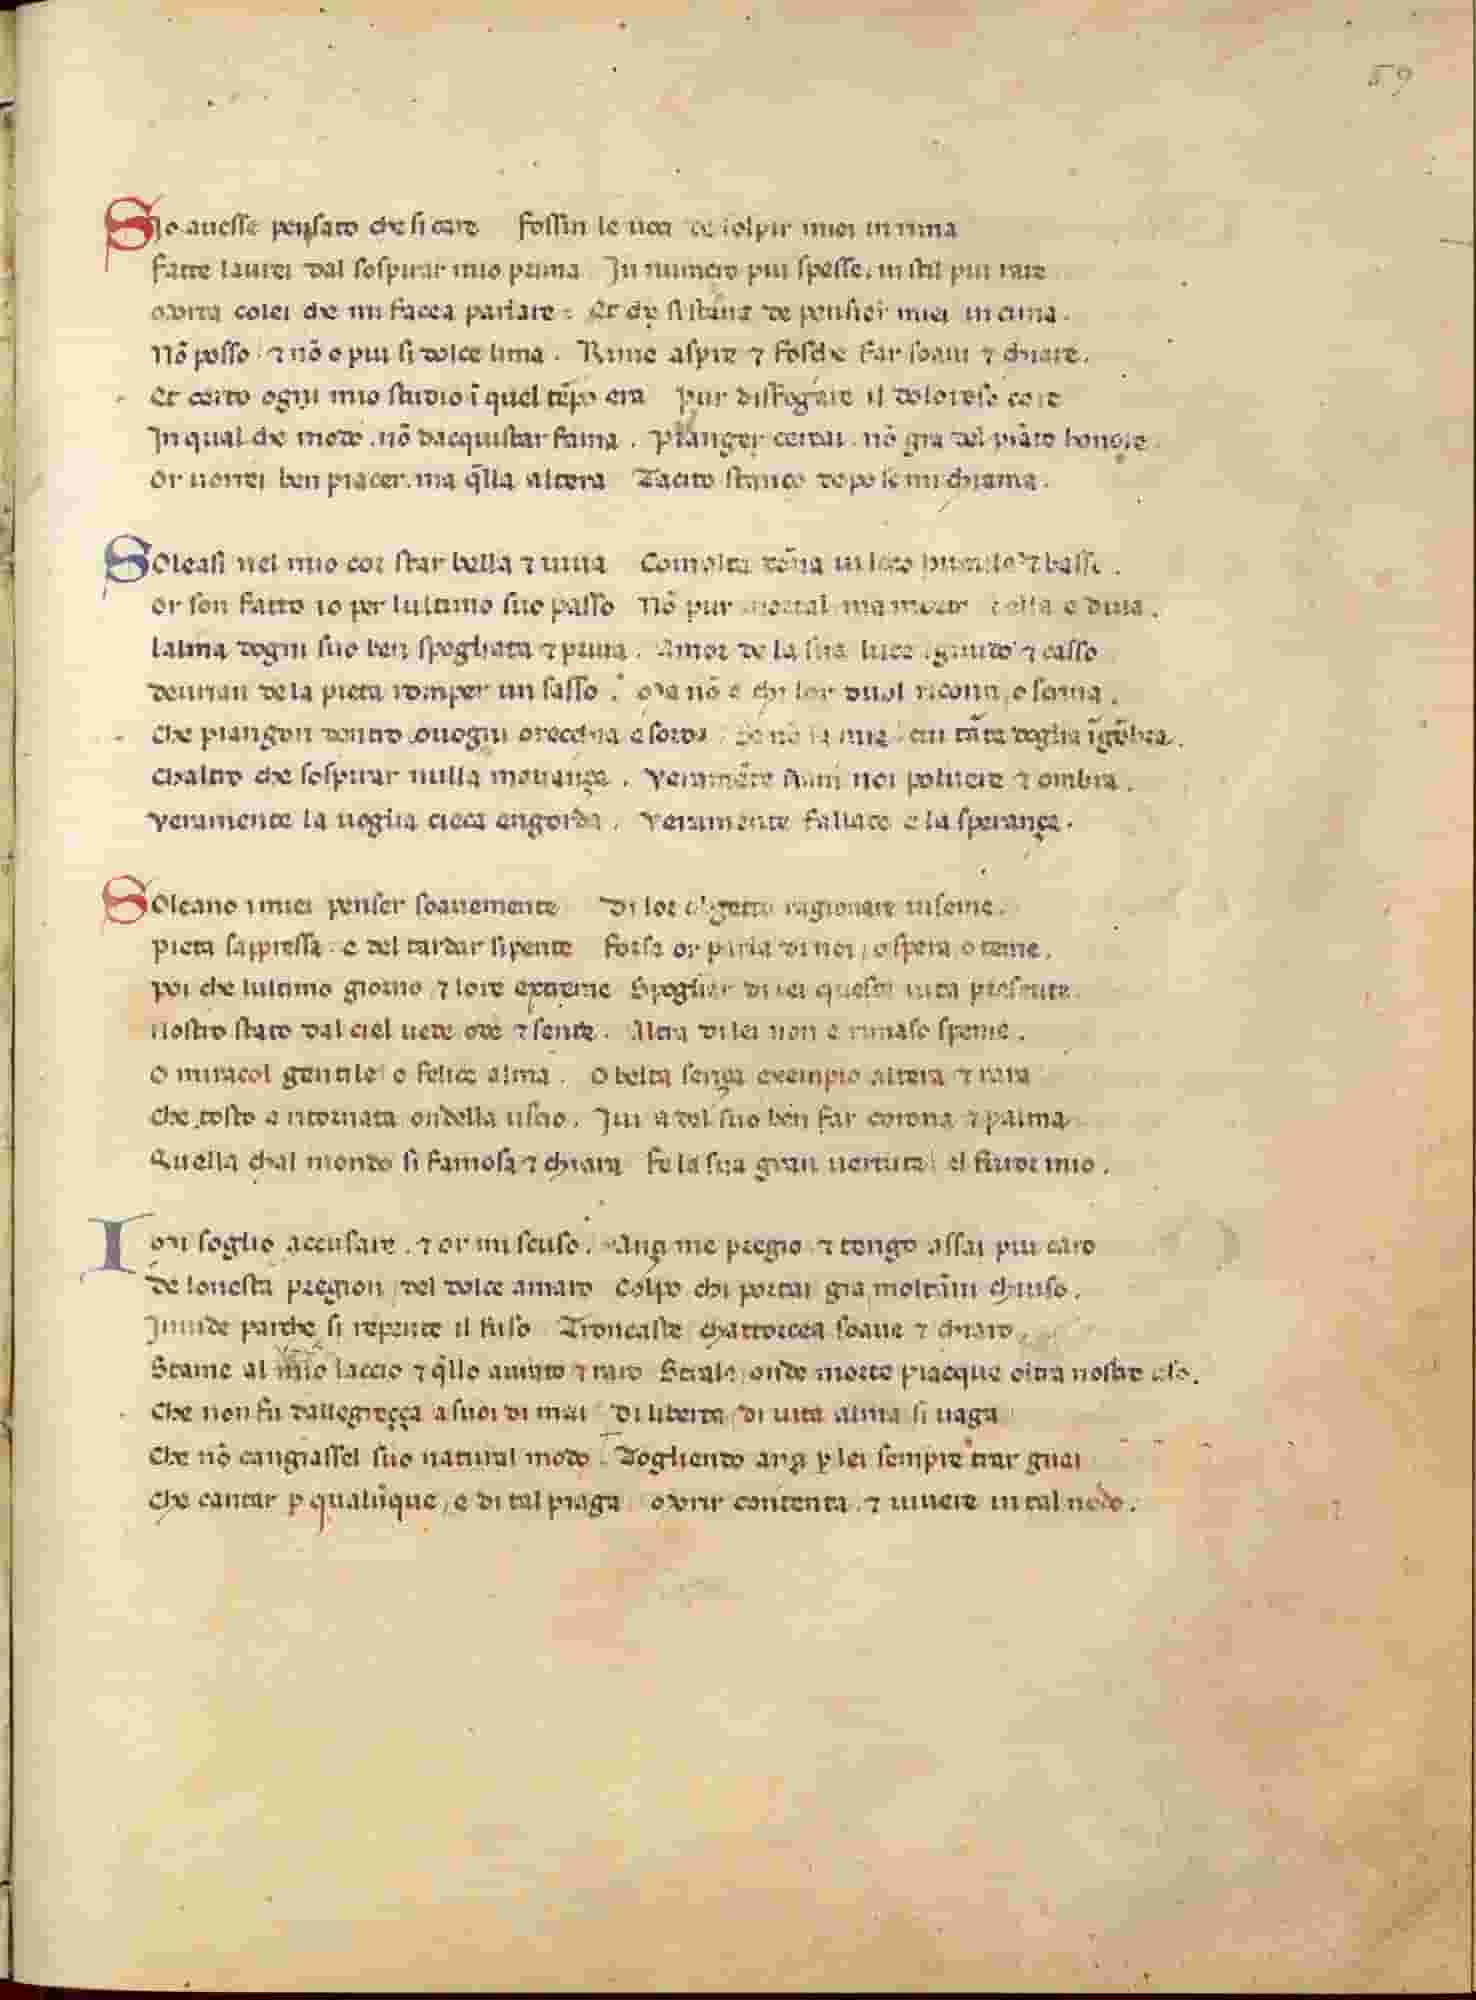 59
Sio auesse pensato che si care Fossin le uoci de sospir miei in rima
Fatte laurei dal sospirar mio prima In numero piu spesse, in stil piu rare
Morta colei che mi facea parlare Et che si staua de pensier miei in cima.
Nō posso ⁊ nō o piu si dolce lima. Rime aspre ⁊ fosche far soaui ⁊ chiare.
Et certo ogni mio studio ī quel tēpo era Pur disfogare il doloroso core
In qual che modo, nō dacquistar fama. Pianger cercai, nō gia del piāto honore.
Or uorrei ben piacer, ma q̄lla altera Tacito stanco dopo se mi chiama.
SOleasi nel mio cor star bella ⁊ uiua Comalta dōna in loco humile ⁊ basso.
Or son fatto io per lultimo suo passo Nō pur mortal ma morto, ella e diua.
Lalma dogni suo ben spogliata ⁊ priua. Amor de la sua luce ignudo ⁊ casso
deurian de la pieta romper un sasso. Ma nō e chi lor duol riconti o scriua.
Che piangon dentro, ouogni orecchia e sorda, Se nō la mia cui tāta doglia īgōbra.
Chaltro che sospirar nulla mauança. Veramēte siam noi poluere ⁊ ombra.
Veramente la uoglia cieca engorda. Veramente fallace e la sperança.
SOleano i miei penser soauemente Di lor obgetto ragionare inseme.
Pieta sappressa, e del tardar si pente Forse or parla di noi, o spera, o teme.
Poi che lultimo giorno, ⁊ lore extreme Spogliar di lei questa uita presente.
Nostro stato dal ciel uede, ode, ⁊ sente. Altra di lei non e rimaso speme.
O miracol gentile o felice alma. O belta sença exempio altera ⁊ rara
Che tosto e ritornata ondella uscio. Iui a del suo ben far corona ⁊ palma
Quella chal mondo si famosa ⁊ chiara Fe la sua gran uertute, el furor mio.
I omi soglio accusare, ⁊ or mi scuso. Ançi me pregio ⁊ tengo assai piu caro
De lonesta pregion, del dolce amaro Colpo chi portai gia moltāni chiuso.
Inuide parche si repente il fuso Troncaste, chattorcea soaue ⁊ chiaro
Stame al mio laccio ⁊ q̄llo aurato ⁊ raro Strale, onde morte piacque oltra nostro uso.
Che non fu dallegreçça a suoi di mai Di liberta, di uita alma si uaga
Che nō cangiassel suo natural modo. Togliendo ançi ꝑ lei sempre trar guai
Che cantar ꝑ qualūque, e di tal piaga Morir contenta, ⁊ uiuere in tal nodo.